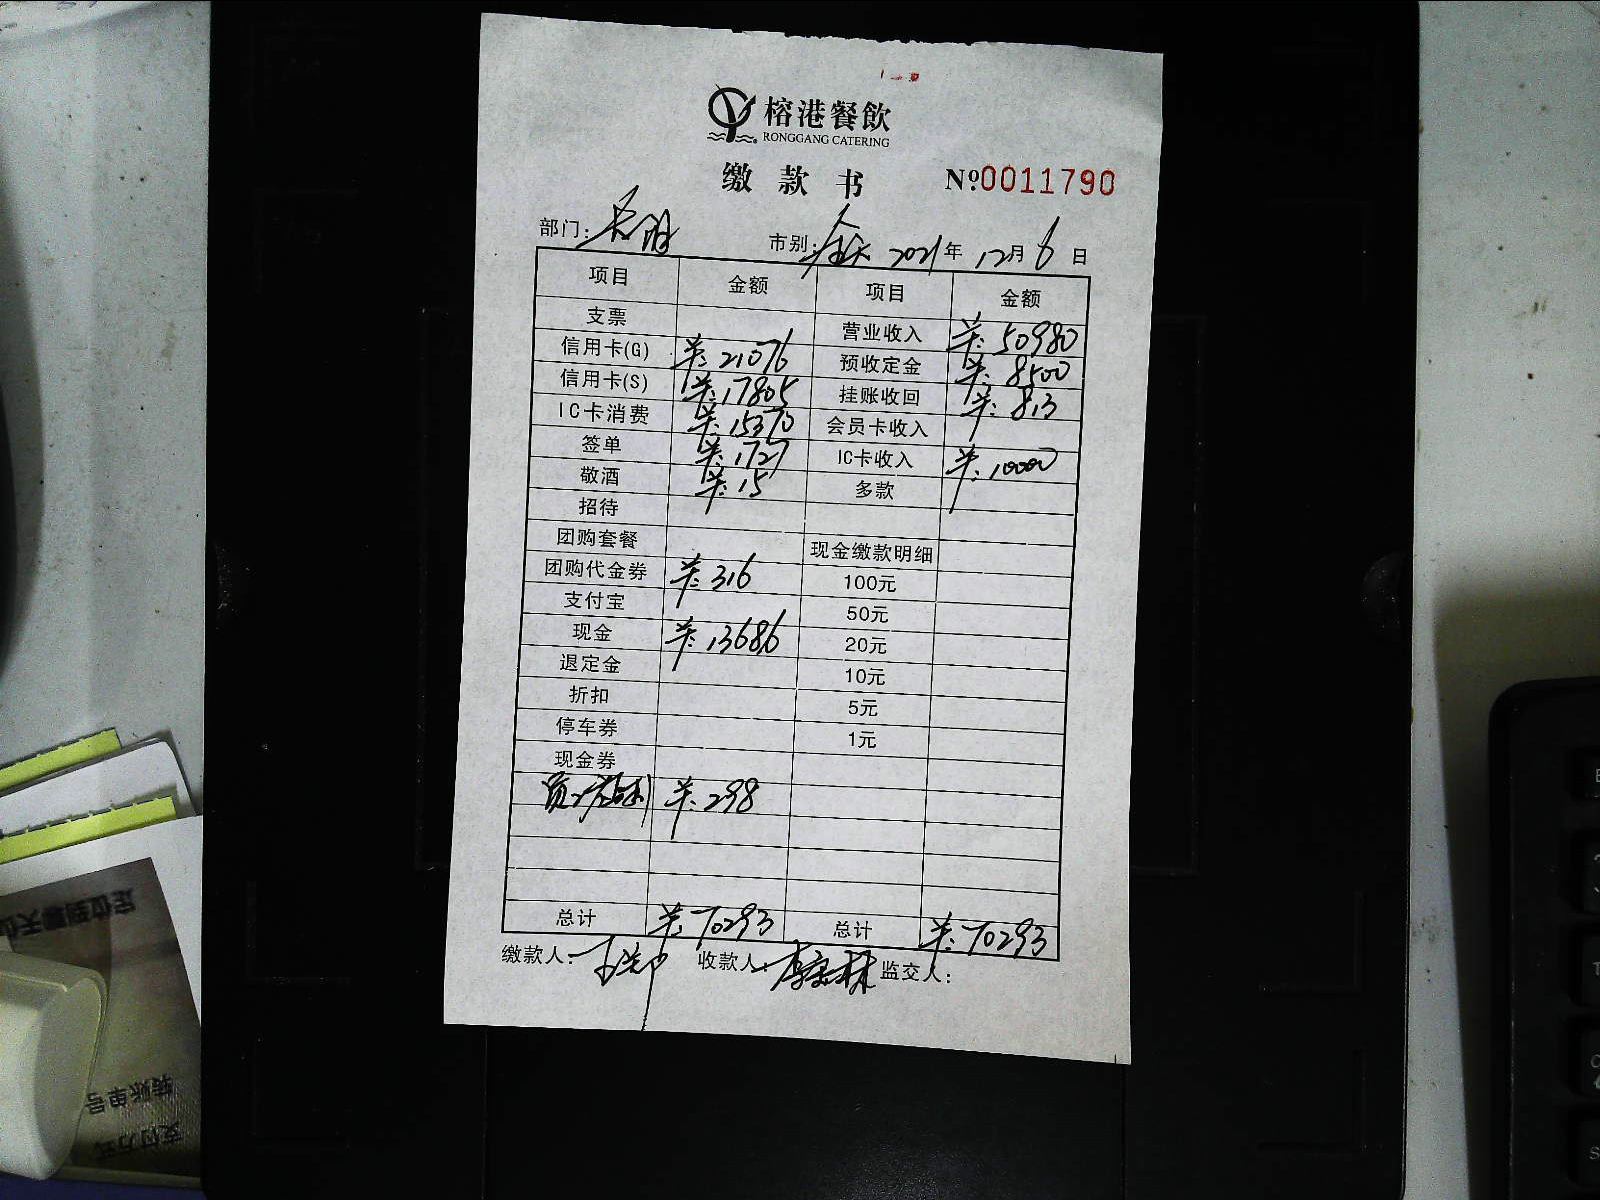 榕港餐飲
RONGGANG CATERING
缴款书 Nº0011790
部门: 市别: 全天 2021年 12月 6日
项目 金额 项目 金额
支票 营业收入 ¥: 50980
信用卡(G) ¥: 21076 预收定金 ¥: 8500
信用卡(S) ¥: 17805 挂账收回 ¥: 813
IC卡消费 ¥: 15370 会员卡收入
签单 ¥: 1727 IC卡收入 ¥: 10000
敬酒 ¥: 15 多款
招待
团购套餐 现金缴款明细
团购代金券 ¥: 316 100元
支付宝 50元
现金 ¥: 13686 20元
退定金 10元
折扣 5元
停车券 1元
现金券
¥: 298
总计 ¥: 70293 总计 ¥: 70293
缴款人: 收款人: 监交人:
定位到聊天位
转账单号
支付方式